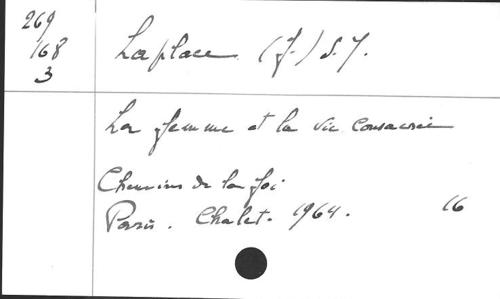 269
168
3
Laplace (J.) S.J.
La femme et la vie consacrée
Chemins de la foi
Paris. Chalet. 1964. 16